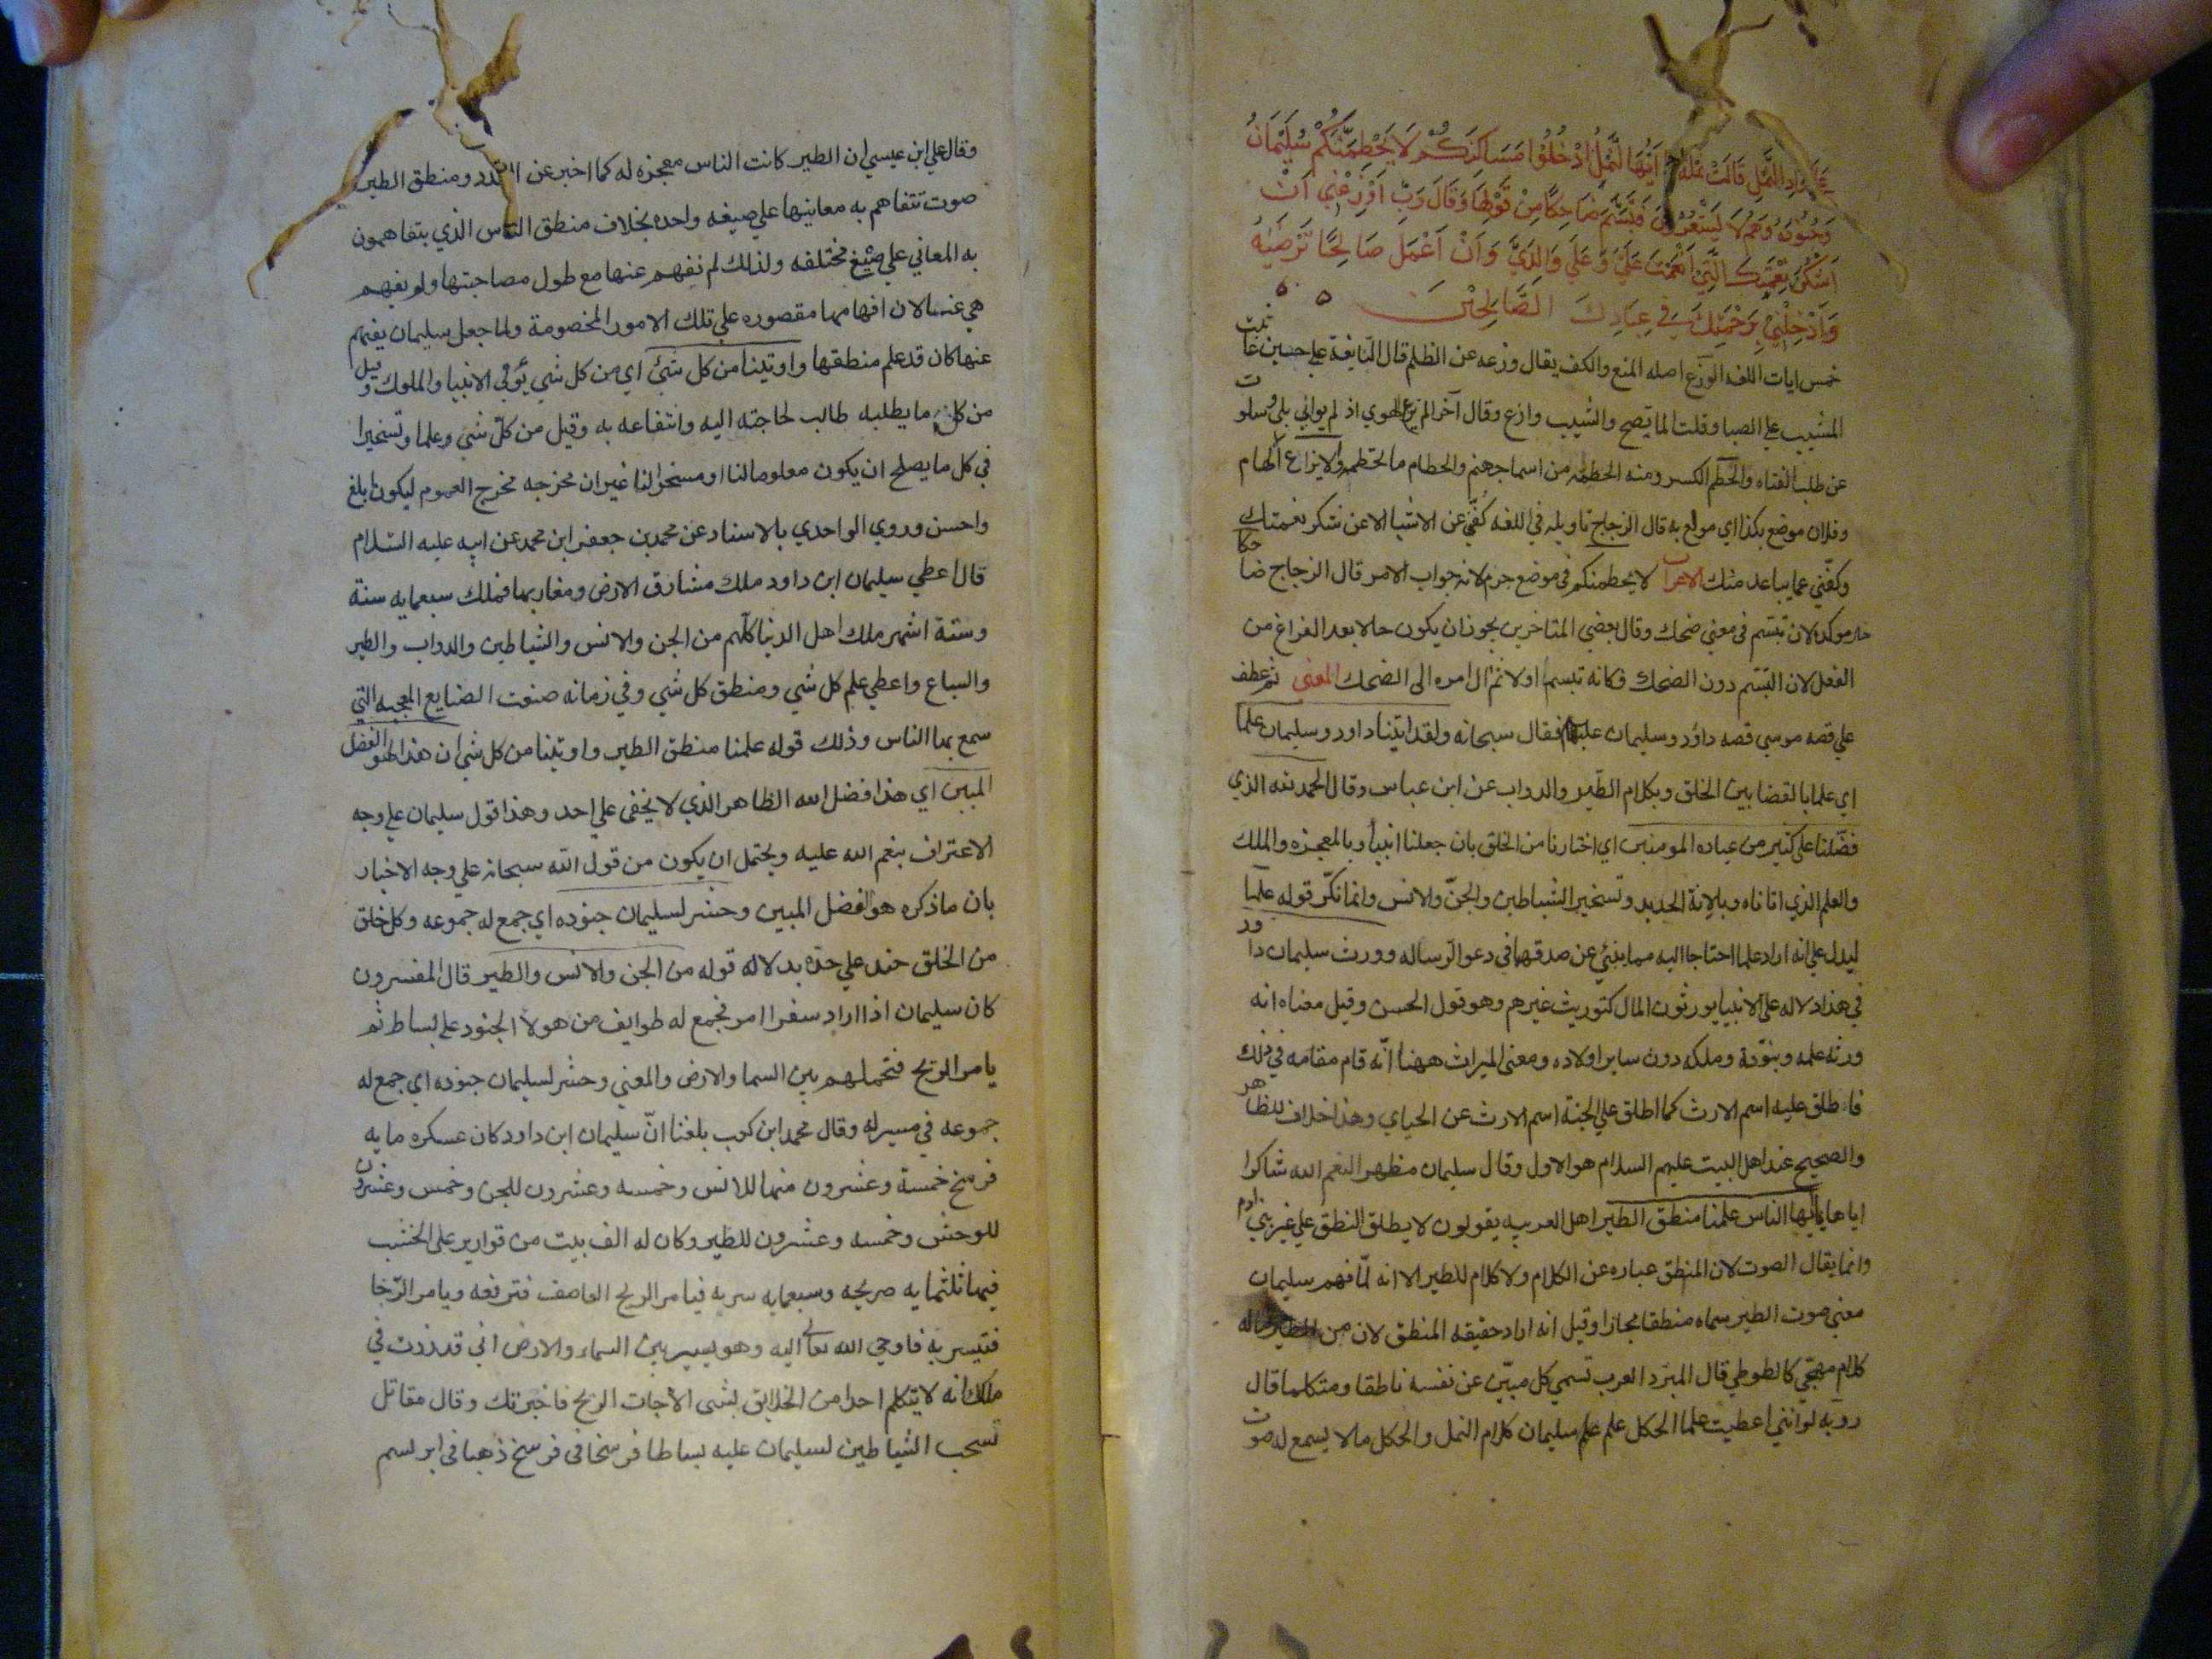 وَادِ النَّمْلِ قَالَتْ نَمْلَةٌ يَا أَيُّهَا النَّمْلُ ادْخُلُوا مَسَاكِنَكُمْ لَا يَحْطِمَنَّكُمْ سُلَيْمَانُ
وَجُنُودُهُ وَهُمْ لَا يَشْعُرُونَ فَتَبَسَّمَ ضَاحِكًا مِنْ قَوْلِهَا وَقَالَ رَبِّ أَوْزِعْنِي أَنْ
أَشْكُرَ نِعْمَتَكَ الَّتِي أَنْعَمْتَ عَلَيَّ وَعَلَى وَالِدَيَّ وَأَنْ أَعْمَلَ صَالِحًا تَرْضَيهُ
وَأَدْخِلْنِي بِرَحْمَتِكَ فِي عِبَادِكَ الصَّالِحِيْنَ
خمس ايات اللغه الوزع اصله المنع والكف يقال وزعه عن الظلم قال النابغة علي حسين عاتبت
المشيب علي الصبا وقلت الما تصح والشيب وازع وقال آخر الم يزع الهوي اذ لم يواتي بلي وسلوت
عن طلب الفتاه والحطم الكسر ومنه الحطمه من اسما جهنم والحطام ما تحطم والايزاع الهام
وفلان موضع بكذا اي مولع به قال الزجاج تاويله في اللغه كفني عن الاشيا الا عن شكر نعمتك
وكفني عما يباعد منك الاعراب لا يحطمنكم في موضع جزم لانه جواب الامر قال الزجاج ضاحكا
حال موكده لان تبسم في معني ضحك وقال بعضي المتاخرين يجوز ان يكون حالا بعد الفراغ من
الفعل لان التبسم دون الضحك فكانه تبسم اولا ثم ال امره الى الضحك المعني ثم عطف
علي قصه موسي قصه داؤد وسليمان عليهما فقال سبحانه ولقد اتينا داود وسليمان علما
اي علما بالقضا بين الخلق وبكلام الطير والدواب عن ابن عباس وقالا الحمد لله الذي
فضلنا على كثير من عباده المومنين اي اختارنا من الخلق بان جعلنا انبيا وبالمعجزه والملك
والعلم الذي اتاناه وبالانة الحديد وتسخير الشياطين والجنّ والانس وانما نكّر قوله علما
ليدل علي انه اراد علما احتاجا اليه مما ينبئ عن صدقهما في دعوا الرساله وورث سليمان داود
في هذا دلاله على الانبيا يورثون المال كتوريث غيرهم وهو قول الحسن وقيل معناه انه
ورثه علمه ونبوّته وملكه دون ساير اولاده ومعنى الميراث ههنا انّه قام مقامه في ذلك
فاطلق عليه اسم الارث كما اطلق علي الجنة اسم الارث عن الحياي وهذا خلاف للظاهر
والصحيح عند اهل البيت عليهم السلام هو الاول وقال سليمان مظهرا لنعم الله شاكرا
اياها يا ايها الناس علمنا منطق الطير اهل العربيه يقولون لا يطلق النطق علي غير بني ادم
وانما يقال الصوت لان المنطق عباره عن الكلام ولا كلام للطير الا انه لمّا فهم سليمان
معني صوت الطير سماه منطقا مجازا وقيل انه اراد حقيقه المنطق لان من الطير ماله
كلام مهجي كالطوطي قال المبرّد العرب تسمي كل مبيّن عن نفسه ناطقا ومتكلما قال
روبه لو انني اعطيت علما الحكل علم علم سليمان كلام النمل والحكل ما لا يسمع له صوت
وقال علي ابن عيسي ان الطير كانت الناس معجزه له كما اخبر عن ومنطق الطير
صوت تتفاهم به معانيها علي صيغه واحده بخلاف منطق الناس الذي يتفاهمون
به المعاني علي صيغ مختلفه ولذلك لم نفهم عنها مع طول مصاحبتها ولم يفهم
هي عنا لان افهامها مقصوره علي تلك الامور المخصومة ولما جعل سليمان يفهم
عنها كان قد علم منطقها واوتينا من كل شيئ اي من كل شي يؤتي الانبيا والملوك وقيل
من كل ما يطلبه طالب لحاجته اليه وانتفاعه به وقيل من كلّ شي وعلما وتسخيرا
في كل ما يصلح ان يكون معلوما لنا او مسخرا لنا غير ان مخرجه مخرج العموم ليكون ابلغ
واحسن وروي الواحدي بالاسناد عن محمد بن جعفر ابن محمد عن ابيه عليه السّلام
قال اعطي سليمان ابن داود ملك مشارق الارض ومغاربها فملك سبعمايه سنة
وستة اشهر ملك اهل الدنيا كلّهم من الجن والانس والشياطين والدواب والطير
والسباع واعطي علم كل شي ومنطق كل شي وفي زمانه صنعت الصنايع العجيبه التي
سمع بها الناس وذلك قوله علمنا منطق الطير واوتينا من كل شي ان هذا لهو الفضل
المبين اي هذا فضل الله الظاهر الذي لا يخفى علي احد وهذا قول سليمان علي وجه
الاعتراف بنعم الله عليه ويحتمل ان يكون من قول اللّه سبحانه علي وجه الاخبار
بان ما ذكره هو الفضل المبين وحشر لسليمان جنوده اي جمع له جموعه وكل خلق
من الخلق جند علي حدّه بدلاله قوله من الجن والانس والطير قال المفسرون
كان سليمان اذا اراد سفرا امر فجمع له طوايف من هولا الجنود علي بساط ثم
يامر الريح فتحملهم بين السما والارض والمعني وحشر لسليمان جنوده اي جمع له
جموعه في مسيره وقال محمد ابن كعب بلغنا انّ سليمان ابن داود كان عسكره مايه
فرسخ خمسة وعشرون منها للانس وخمسه وعشرون للجن وخمس وعشرون
للوحش وخمسه وعشرون للطير وكان له الف بيت من قوارير على الخشب
فيها ثلثمايه صريحه وسبعمايه سريه فيامر الريح العاصف فترفعه ويامر الرّخا
فتيسر به فاوحي الله تعالي اليه وهو يسير بين السماء والارض اني قد زدت في
ملكك انه لا يتكلم احدا من الخلايق بشي الا جات الريح فاخبرتك وقال مقاتل
نسجت الشياطين لسليمان عليه بساطا فرسخا في فرسخ ذهبا في ابريسم